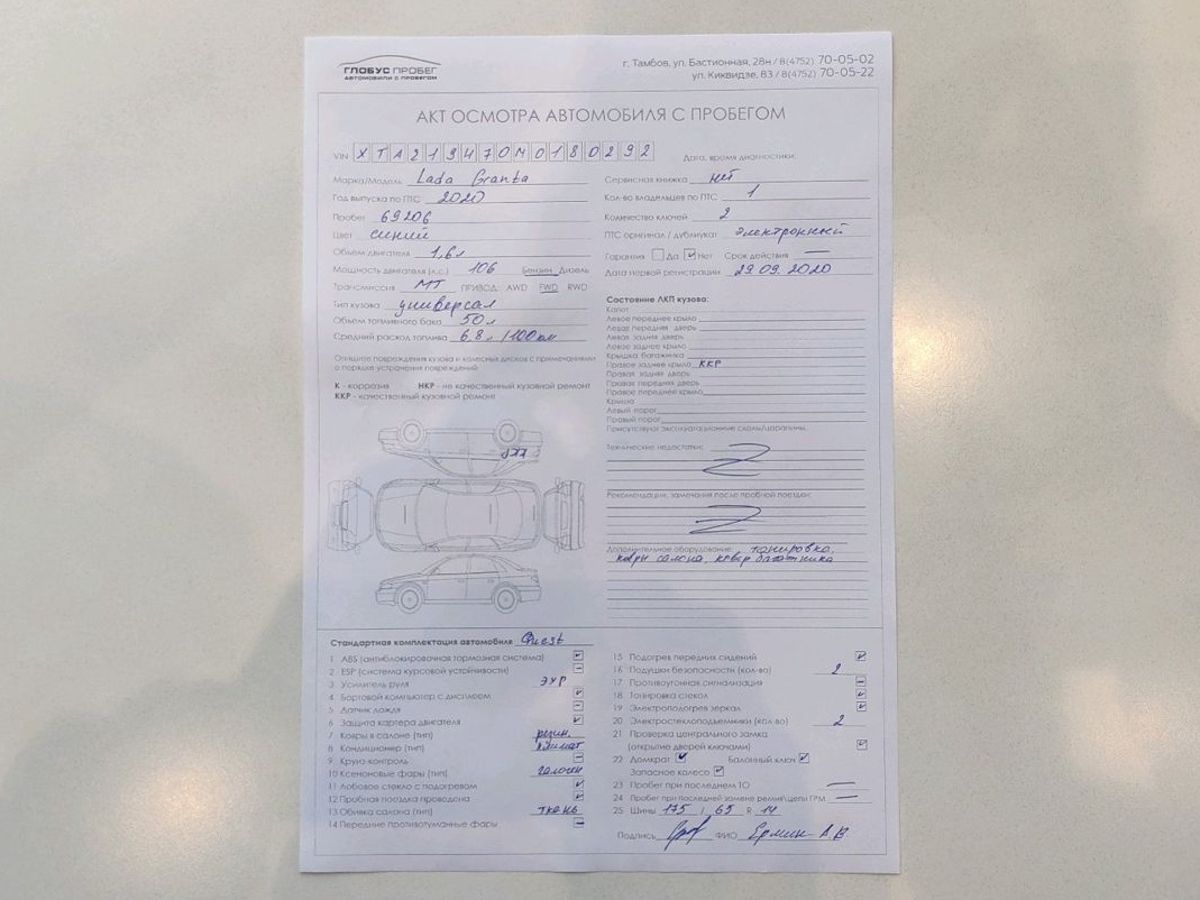 ГЛОБУС ПРОБЕГ
АВТОМОБИЛИ С ПРОБЕГОМ
г. Тамбов, ул. Бастионная, 28н / 8(4752) 70-05-02
ул. Киквидзе, 83 / 8(4752) 70-05-22
АКТ ОСМОТРА АВТОМОБИЛЯ С ПРОБЕГОМ
VIN XTA219470M0180292
Дата, время диагностики:
Марка/Модель Lada Granta
Год выпуска по ПТС 2020
Пробег 69206
Цвет синий
Объем двигателя 1,6 л
Мощность двигателя (л.с.) 106 Бензин Дизель
Трансмиссия МТ ПРИВОД: AWD FWD RWD
Тип кузова универсал
Объем топливного бака 50 л
Средний расход топлива 6,8 л /100км
Опишите повреждения кузова и колесных дисков с примечаниями
о порядке устранения повреждений
К - коррозия НКР - не качественный кузовной ремонт
ККР - качественный кузовной ремонт
ККР
Сервисная книжка нет
Кол-во владельцев по ПТС 1
Количество ключей 2
ПТС оригинал / дубликат электронный
Гарантия Да Нет Срок действия —
Дата первой регистрации 29.09.2020
Состояние ЛКП кузова:
Капот
Левое переднее крыло
Левая передняя дверь
Левая задняя дверь
Левое заднее крыло
Крышка багажника
Правое заднее крыло ККР
Правая задняя дверь
Правая передняя дверь
Правое переднее крыло
Крыша
Левый порог
Правый порог
Присутствуют эксплуатационные сколы/царапины.
Технические недостатки:
Рекомендации, замечания после пробной поездки:
Дополнительное оборудование: тонировка,
ковры салона, ковер багажника
Стандартная комплектация автомобиля Quest
1 ABS (антиблокировочная тормозная система)
2 ESP (система курсовой устойчивости)
3 Усилитель руля ЭУР
4 Бортовой компьютер с дисплеем
5 Датчик дождя
6 Защита картера двигателя
7 Ковры в салоне (тип) резин.
8 Кондиционер (тип) климат
9 Круиз-контроль
10 Ксеноновые фары (тип) галоген
11 Лобовое стекло с подогревом
12 Пробная поездка проводена
13 Обивка салона (тип) ткань
14 Передние противотуманные фары
15 Подогрев передних сидений
16 Подушки безопасности (кол-во) 2
17 Противоугонная сигнализация
18 Тонировка стекол
19 Электроподогрев зеркал
20 Электростеклоподъемники (кол-во) 2
21 Проверка центрального замка
(открытие дверей ключами)
22 Домкрат Балонный ключ
Запасное колесо
23 Пробег при последнем ТО —
24 Пробег при последней замене ремня\цепи ГРМ —
25 Шины 175 / 65 R 14
Подпись ФИО Ермин А.В